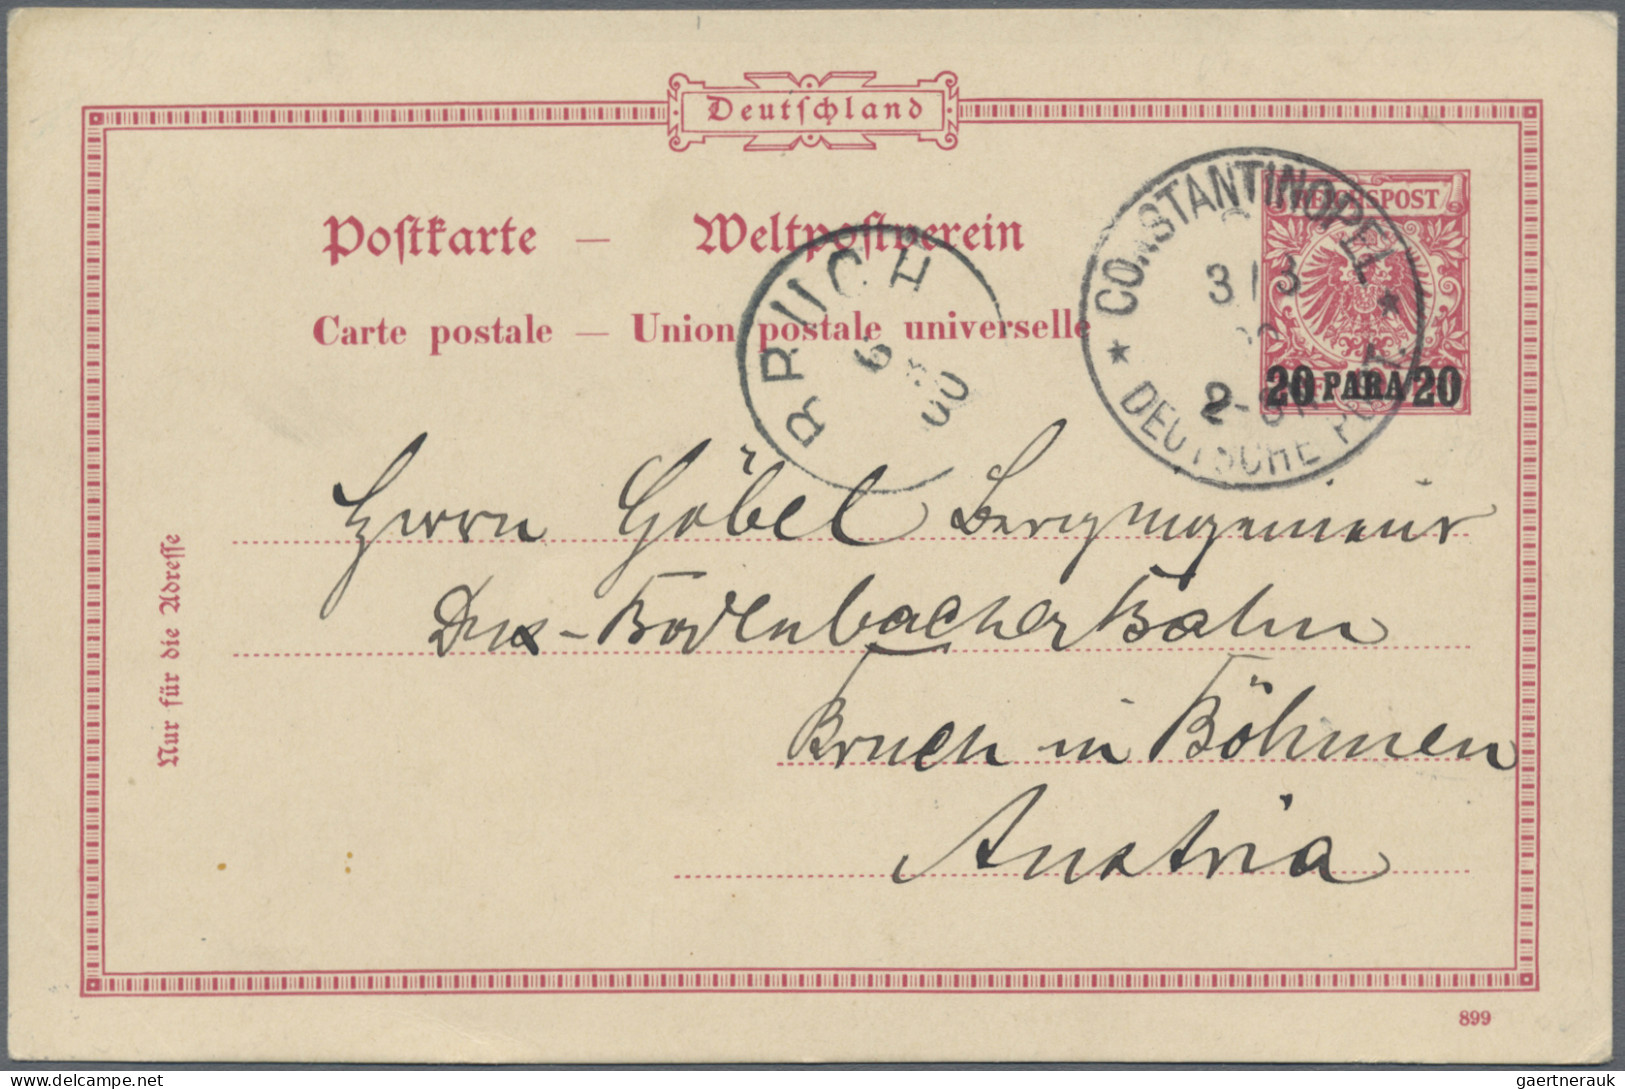 Deutschland
Postkarte — Weltpostverein
Carte postale — Union postale universelle
REICHSPOST
20 PARA 20
CONSTANTINOPEL
3/3
DEUTSCHE POST
BRUCH
6
00
Herrn Göbel Bergingenieur
Dux-Bodenbacher Bahn
Bruch in Böhmen
Austria
Nur für die Adresse
899
gaertnerauk